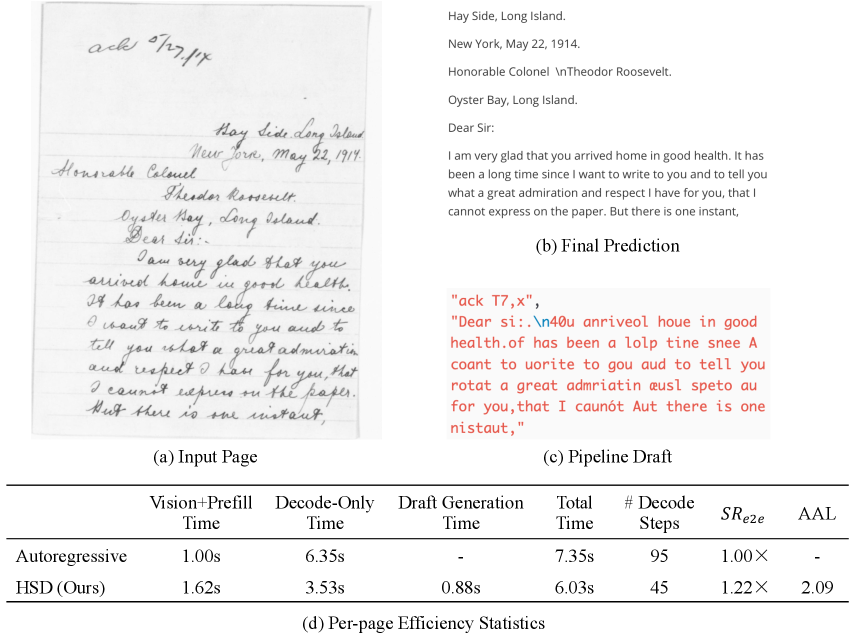 ack 5/27/14
Bay Side. Long Island
New York, May 22, 1914.
Honorable Colonel
Theodor Roosevelt.
Oyster Bay, Long Island.
Dear Sir:-
I am very glad that you
arrived home in good health.
It has been a long time since
I want to write to you and to
tell you what a great admiration
and respect I have for you, that
I cannot express on the paper.
But there is one instant,
(a) Input Page
Hay Side, Long Island.
New York, May 22, 1914.
Honorable Colonel \nTheodor Roosevelt.
Oyster Bay, Long Island.
Dear Sir:
I am very glad that you arrived home in good health. It has
been a long time since I want to write to you and to tell you
what a great admiration and respect I have for you, that I
cannot express on the paper. But there is one instant,
(b) Final Prediction
"ack T7,x",
"Dear si:.\n40u anriveol houe in good
health.of has been a lolp tine snee A
coant to uorite to gou aud to tell you
rotat a great admriatin æusl speto au
for you,that I caunót Aut there is one
nistaut,"
(c) Pipeline Draft
Vision+Prefill Time Decode-Only Time Draft Generation Time Total Time # Decode Steps SRe2e AAL
Autoregressive 1.00s 6.35s - 7.35s 95 1.00× -
HSD (Ours) 1.62s 3.53s 0.88s 6.03s 45 1.22× 2.09
(d) Per-page Efficiency Statistics